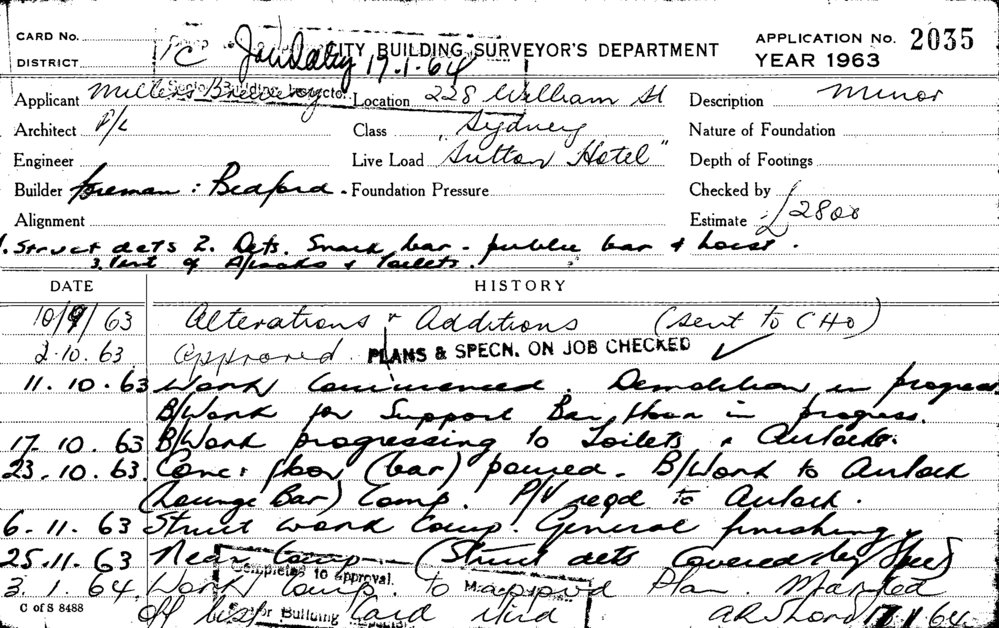 CARD No. CITY BUILDING SURVEYOR'S DEPARTMENT APPLICATION No. 2035
DISTRICT 19.1.64 YEAR 1963
Applicant Millers Brewery Location 228 William St Description Minor
Architect P/L Class Sydney Nature of Foundation
Engineer Live Load "Sutton Hotel" Depth of Footings
Builder foreman: Bedford. Foundation Pressure Checked by
Alignment Estimate £2800
1. Struct dets 2. Dets. Snack bar - public bar & hoist.
3. Vent of A/locks & toilets.
DATE HISTORY
10/9/63 Alterations & Additions (sent to CHO)
2.10.63 Approved. PLANS & SPECN. ON JOB CHECKED ✓
11.10.63 Work Commenced. Demolition in progress.
B/Work for Support Bar floor in progress.
17.10.63 B/Work progressing to Toilets & Airlocks.
23.10.63. Conc: floor (bar) poured. B/Work to Airlock
(Lounge Bar) Comp. P/V reqd to Airlock.
6.11.63 Struct work Comp. General finishing
25.11.63 Near Comp (Struct dets Covered by Spec)
Completed to approval.
3.1.64. Work Comp. to approved Plan. Marked
C of S 8488 off Card 17.1.64
Senior Building